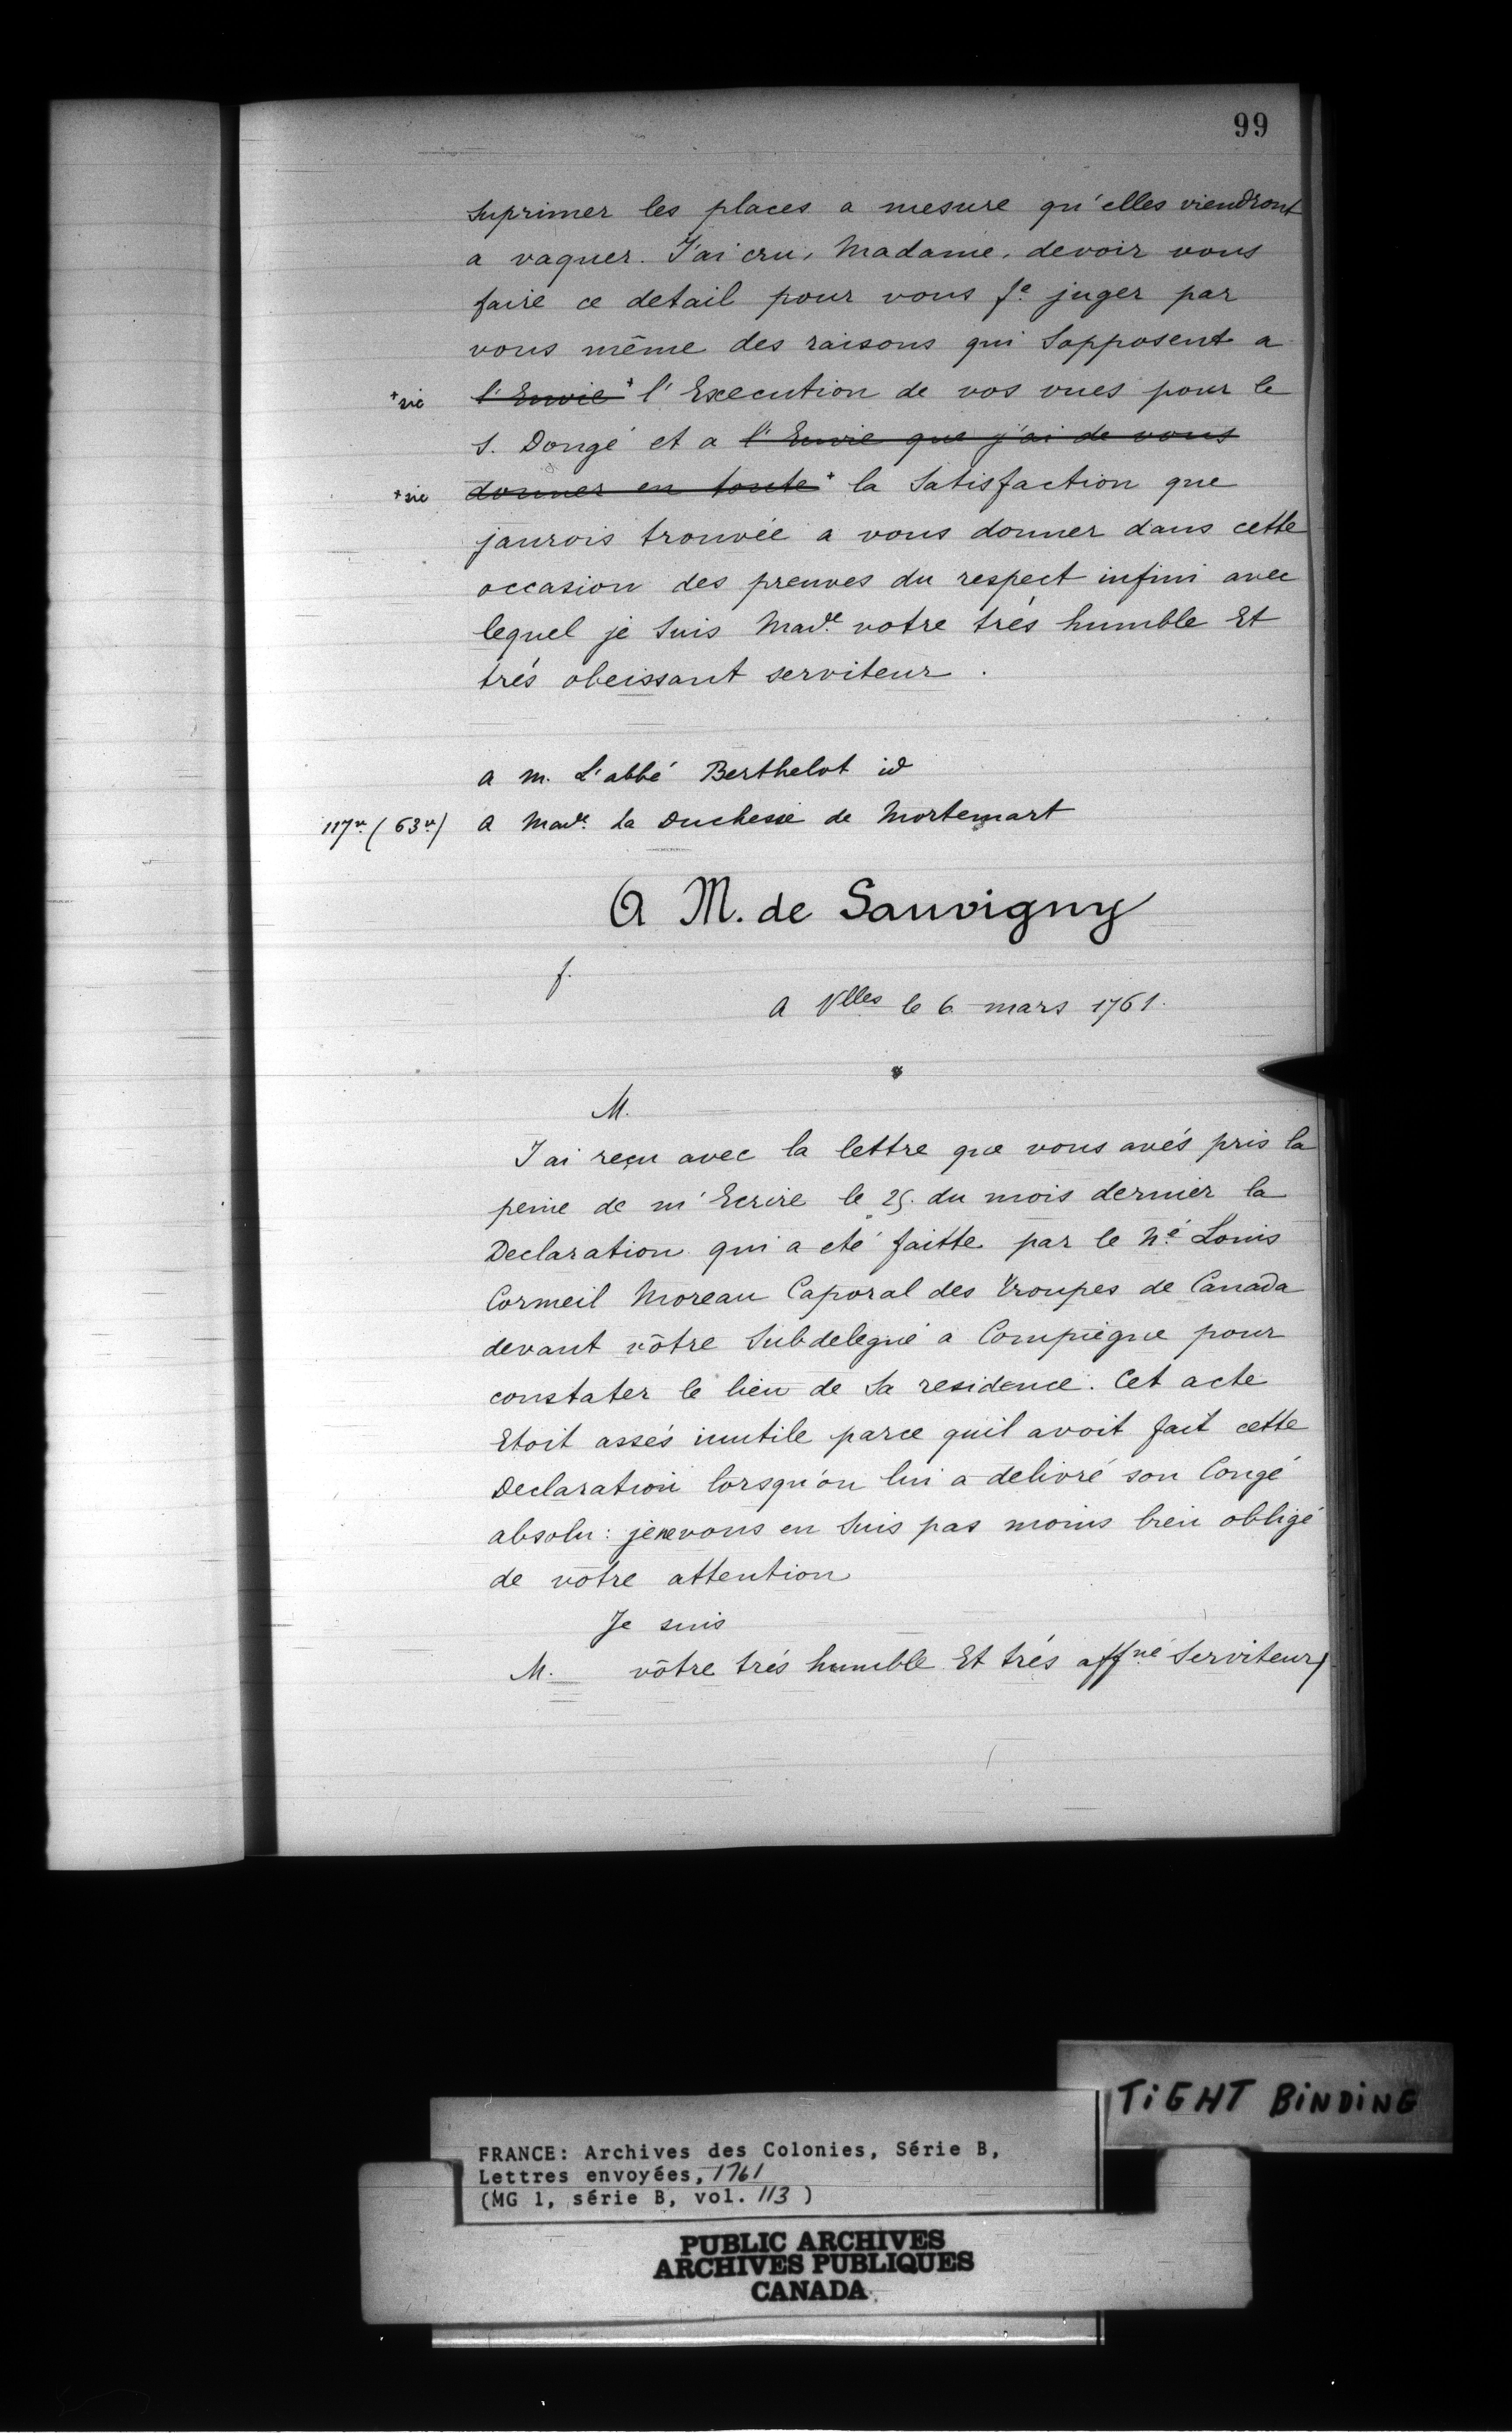 99
Suprimer les places a mesure qu'elles viendront
a vaquer. J'ai cru, Madame, devoir vous
faire ce detail pour vous fe juger par
vous même des raisons qui Sopposent a
+ sic l'Envie + l'Execution de vos vues pour le
S. Dongé et a l'Envie que j'ai de vous
+ sic donner en toute + la Satisfaction que
jaurois trouvée a vous donner dans cette
occasion des preuves du respect infini avec
lequel je Suis Made votre trés humble Et
trés obeissant serviteur.
a m. L'abbé Berthelot id
117v. (63v) a Made. La Duchesse de Mortemart
A M. de Sauvigny
f.
A Vlles le 6 mars 1761.
M.
J'ai reçu avec la lettre que vous avés pris la
peine de m'Ecrire le 25. du mois dernier la
Declaration qui a eté faitte par le né Louis
Cormeil Moreau Caporal des Troupes de Canada
devant vôtre Subdelegué a Compiègne pour
constater le lieu de Sa residence. Cet acte
Etoit assés inutile parce quil avoit fait cette
Declaration lorsqu'on lui a delivré son Congé
absolu: je ne vous en Suis pas moins bien obligé
de vôtre attention
Je suis
M. vôtre trés humble Et trés affné Serviteur
TiGHT BiNDiNG
FRANCE: Archives des Colonies, Série B,
Lettres envoyées, 1761
(MG 1, série B, vol. 113 )
PUBLIC ARCHIVES
ARCHIVES PUBLIQUES
CANADA